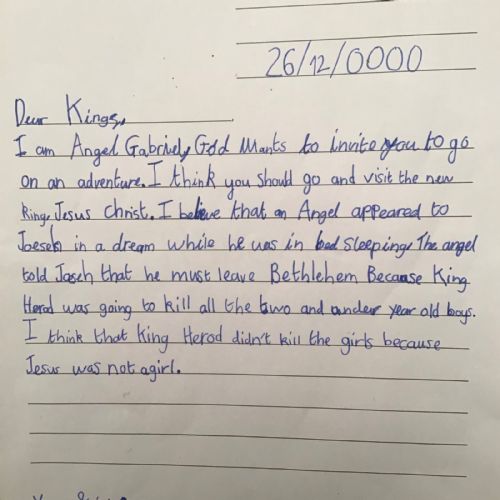 26/12/0000
Dear Kings,
I am Angel Gabriely God wants to invite you to go
on an adventure. I think you should go and visit the new
King, Jesus Christ. I believe that an Angel appeared to
Joeseh in a dream while he was in bed sleeping. The angel
told Joseh that he must leave Bethlehem Because King
Herod was going to kill all the two and under year old boys.
I think that King Herod didn't kill the girls because
Jesus was not a girl.